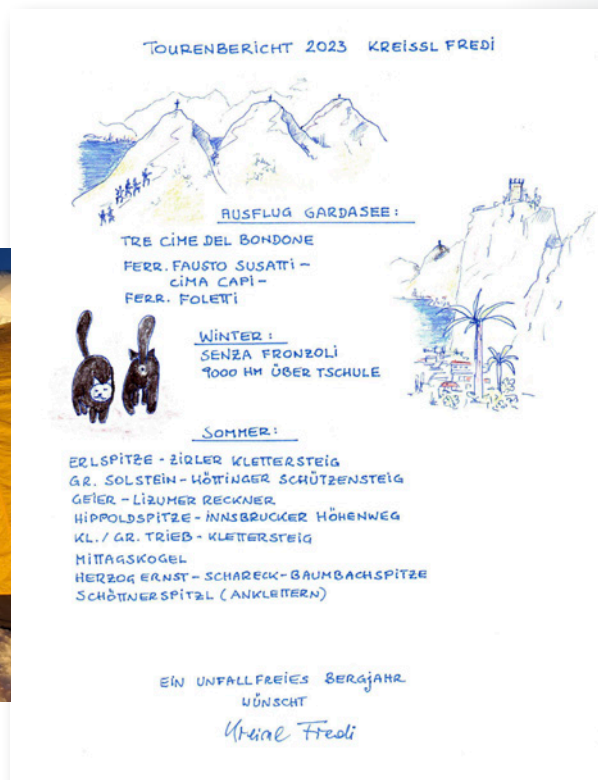 TOURENBERICHT 2023 KREISSL FREDI
AUSFLUG GARDASEE:
TRE CIME DEL BONDONE
FERR. FAUSTO SUSATTI –
CIMA CAPI –
FERR. FOLETTI
WINTER:
SENZA FRONZOLI
9000 HM ÜBER TSCHULE
SOMMER:
ERLSPITZE - ZIRLER KLETTERSTEIG
GR. SOLSTEIN - HÖTTINGER SCHÜTZENSTEIG
GEIER - LIZUMER RECKNER
HIPPOLDSPITZE - INNSBRUCKER HÖHENWEG
KL./ GR. TRIEB - KLETTERSTEIG
MITTAGSKOGEL
HERZOG ERNST - SCHARECK - BAUMBACHSPITZE
SCHÖTTNERSPITZL (ANKLETTERN)
EIN UNFALLFREIES BERGJAHR
WÜNSCHT
Fredi